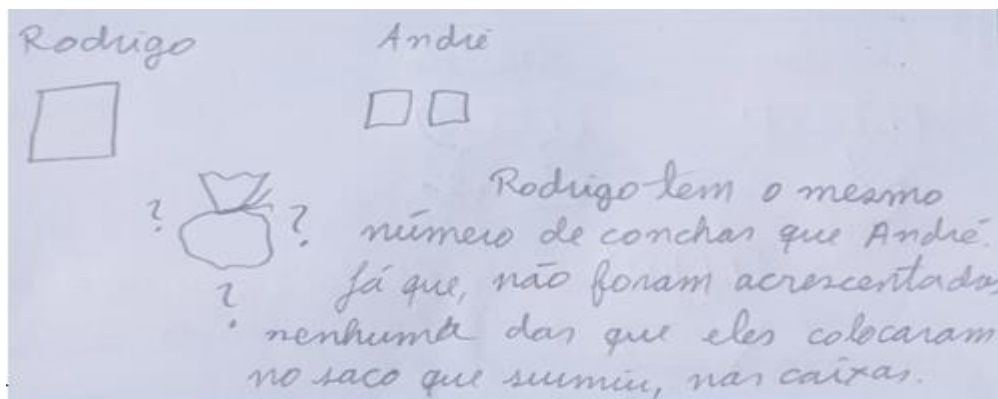 Rodrigo André
? ?
?
Rodrigo tem o mesmo
número de conchas que André.
Já que, não foram acrescentadas
nenhuma das que eles colocaram
no saco que sumiu, nas caixas.